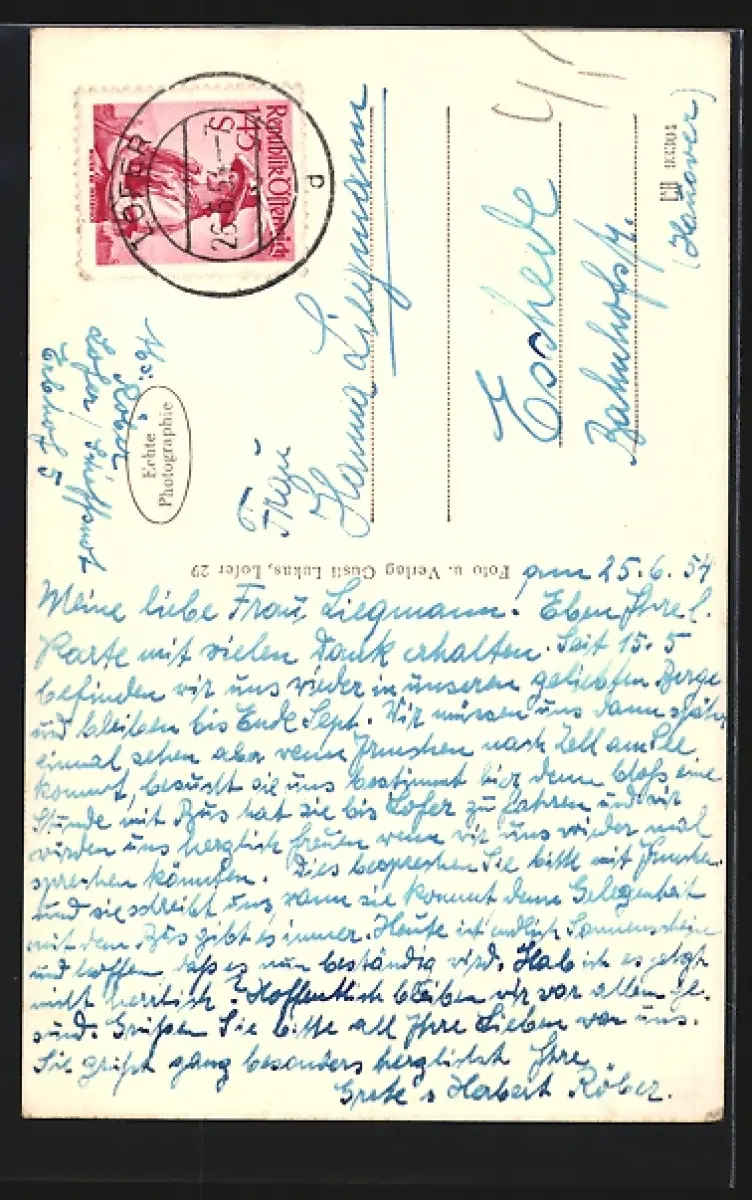 Republik Österreich
1.45
LOFER
26.6.54.-8
d
Abs. Röber
Lofer / Scheffsnot
Erbhof 5
Echte
Photographie
Frau
Hanna Liegmann
Eschede
Bahnhofstr.
(Hanover)
93304
Foto u. Verlag Gusti Lukas, Lofer 29
am 25.6.54
Meine liebe Frau Liegmann! Eben Ihre l.
Karte mit vielen Dank erhalten. Seit 15.5
befinden wir uns wieder in unseren geliebten Berge
und bleiben bis Ende Sept. Wir müssen uns dann
einmal sehen aber wenn nach Zell am See
kommt, besucht sie uns bestimmt hier denn bloß eine
Stunde mit Bus hat sie bis Lofer zu fahren und wir
würden uns herzlich freuen wenn wir uns wieder mal
sprechen könnten. Dies besprechen Sie bitte mit
und sie schreibt uns, wann sie kommt denn Gelegenheit
mit dem Bus gibt es immer. Heute ist endlich Sonnenschein
und hoffen, daß es nun beständig wird. Hab ich es jetzt
nicht herrlich? Hoffentlich bleiben wir vor allem ge-
sund. Grüßen Sie bitte all Ihre Lieben von uns.
Sie grüßt ganz besonders herzlichst Ihre
Grete u Herbert Röber.